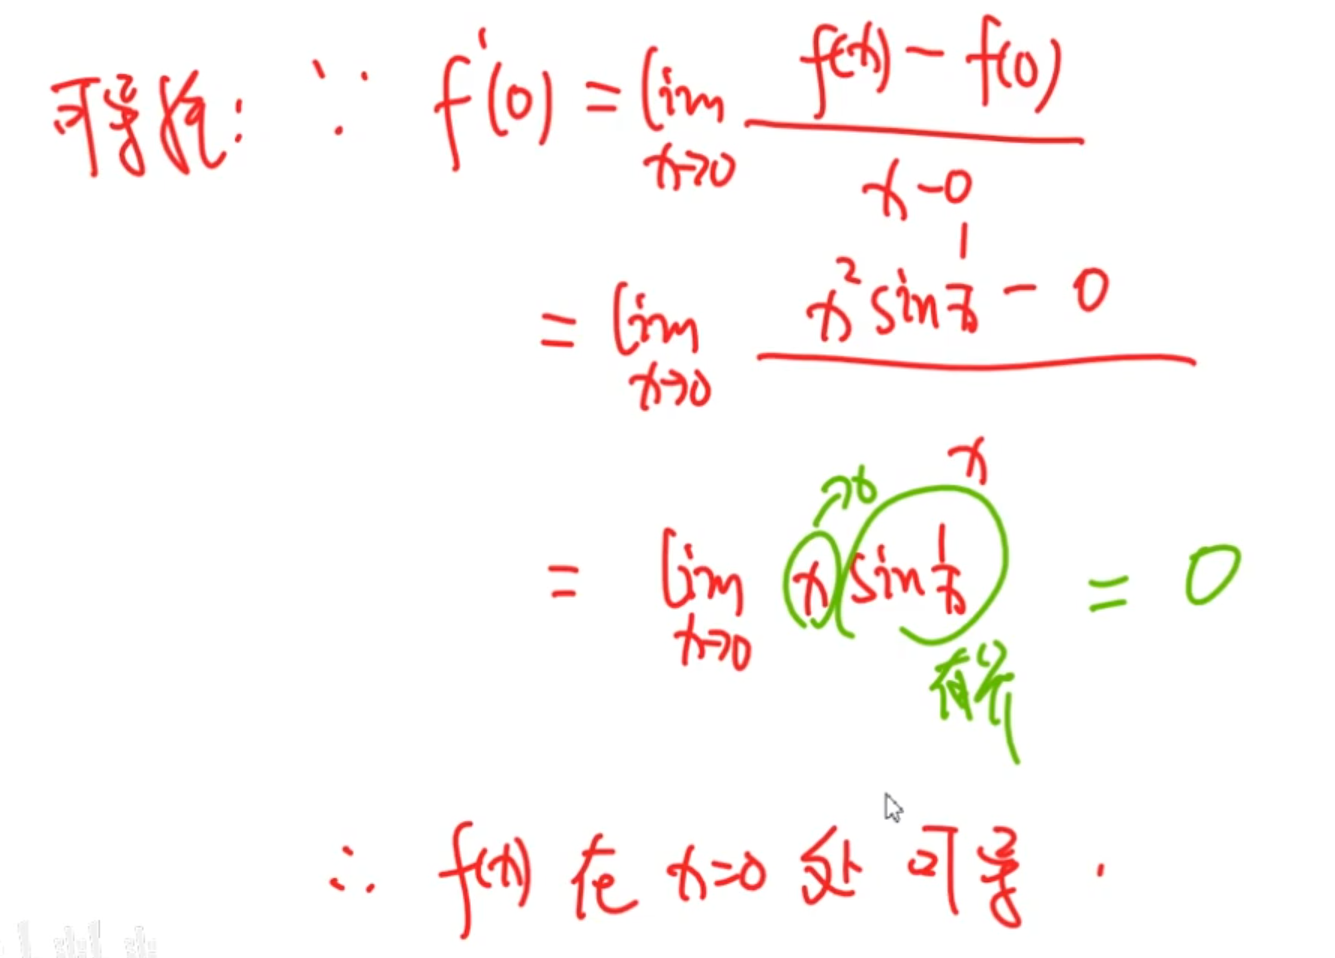 可导性: ∵ f'(0) = lim x→0 (f(x) - f(0)) / (x-0)
= lim x→0 (x² sin 1/x - 0) / x
= lim x→0 x sin 1/x = 0
→0
有界
∴ f(x) 在 x=0 处可导.